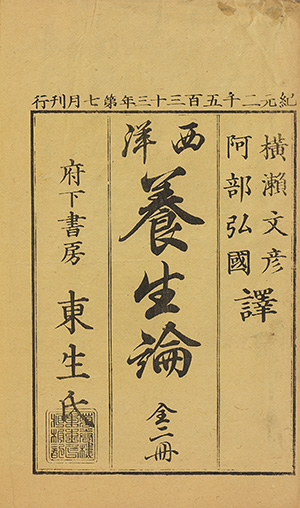 紀元二千五百三十三年第七月刊行
横瀬文彦
阿部弘國
譯
西洋
養生論
全二冊
府下書房
東生氏